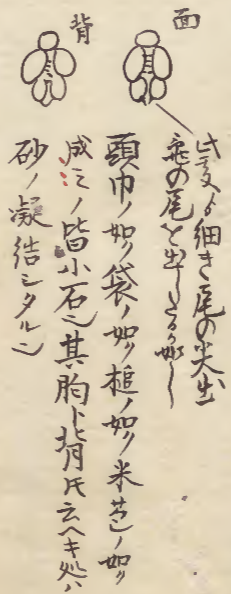 面
背
此処より細き尾の尖出
亀の尾を出したるが如し
頭巾ノ如ク袋ノ如ク槌ノ如ク米苞ノ如ク
成ミノ皆小石也其胸ト背トモ云ヘキ処ハ
砂ノ凝結シタル也